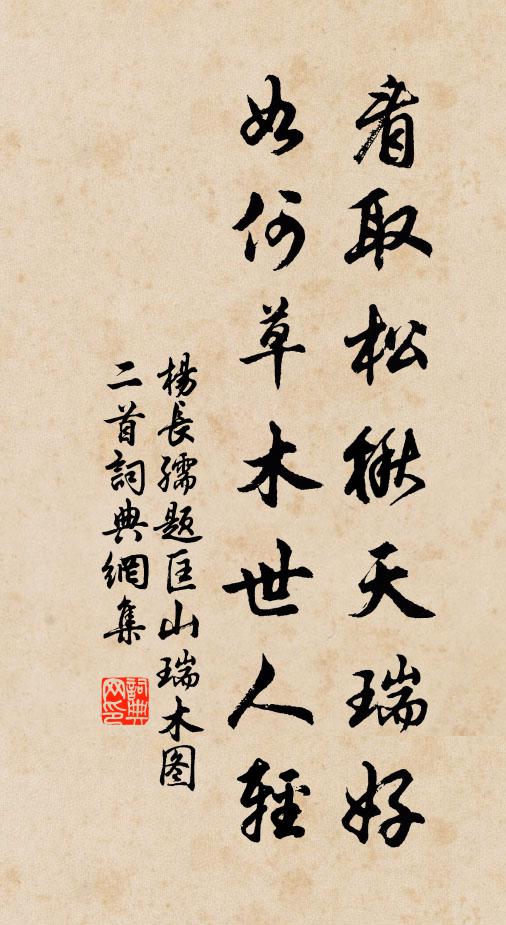 看取松楸天瑞好
如何草木世人輕
楊長孺題匡山瑞木图
二首詞典網集
詞典网印